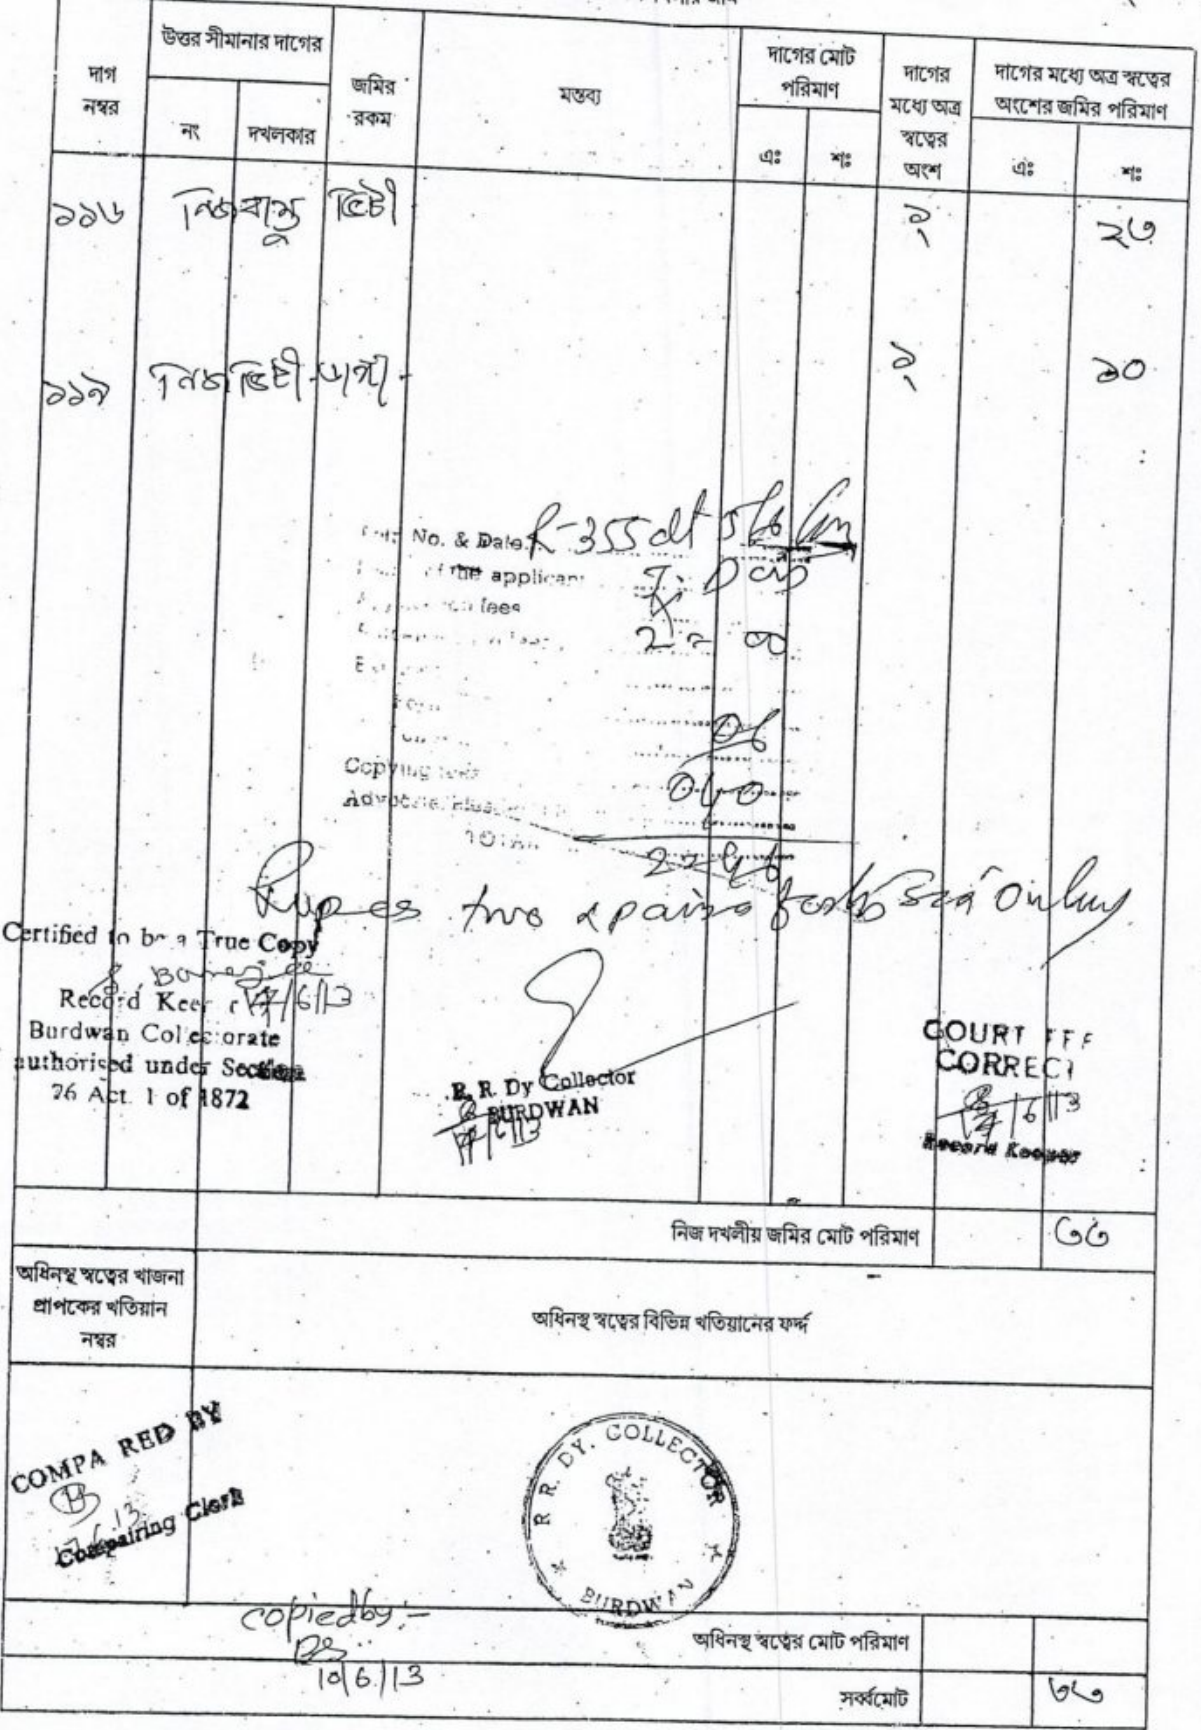 দাগ নম্বর
উত্তর সীমানার দাগের
নং
দখলকার
জমির রকম
মন্তব্য
দাগের মোট পরিমাণ
এঃ
শঃ
দাগের মধ্যে অত্র স্বত্বের অংশ
দাগের মধ্যে অত্র স্বত্বের অংশের জমির পরিমাণ
এঃ
শঃ
১১৬ নিজবাস্তু ভিটী ১ ২৩
১১৯ নিজভিটী ডাঙ্গা ১ ১০
No. & Date R-355 dt
of the applicant
fees
2 = 00
06
Copying fees 040
Advocate
TOTAL 2=46
Rupees two & paise forty six only
Certified to be a True Copy
17/6/13
Record Keeper
Burdwan Collectorate
authorised under Section
76 Act. 1 of 1872
R. R. Dy Collector
BURDWAN
17/6/13
COURT FEE
CORRECT
17/6/13
Record Keeper
নিজ দখলীয় জমির মোট পরিমাণ ৩৩
অধিনস্থ স্বত্বের খাজনা
প্রাপকের খতিয়ান
নম্বর
অধিনস্থ স্বত্বের বিভিন্ন খতিয়ানের ফর্দ্দ
COMPA RED BY
17.6.13
Compairing Clerk
R. R. DY. COLLECTOR
BURDWAN
copied by :-
10/6/13
অধিনস্থ স্বত্বের মোট পরিমাণ
সর্ব্বমোট ৩৩